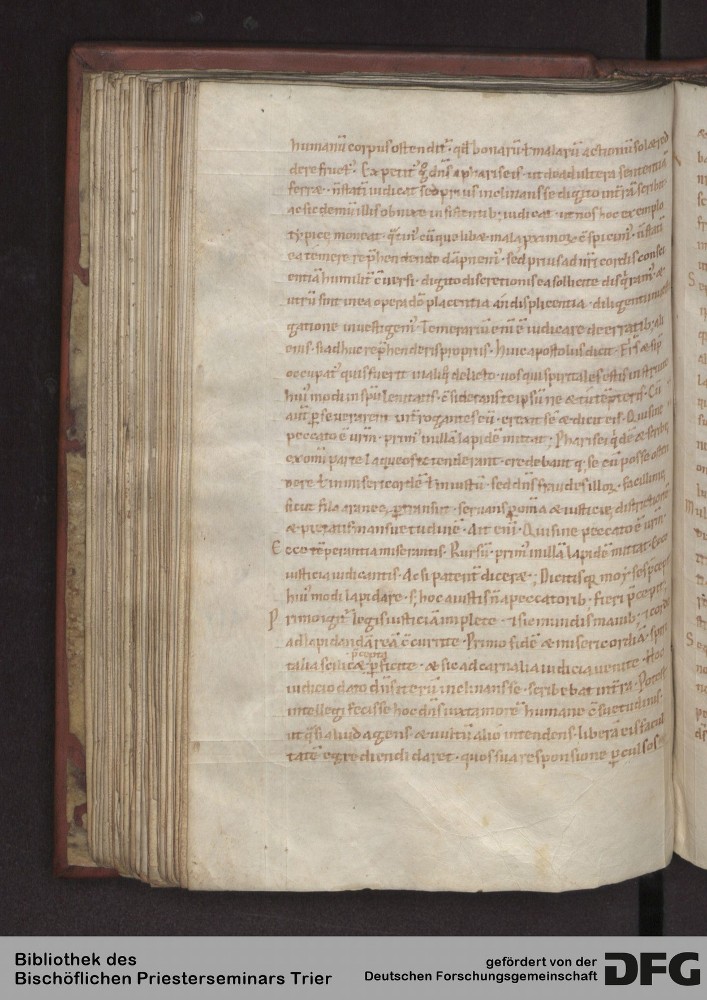 humanū corpus ostendit᷑. qđ bonarū ł malarū actionū solæ red
dere fruct᷑. Expetit᷑ dn̄s a phariseis. ut de adultera sententiā
ferræ. n̄ statī iudicat sed prius inclinans se digito int̄rā scribit.
ac sic demū illis obnixe insistentib; iudicat. ut nos hoc exemplo
typice moneat. cūque libæ mala proximoꝝ c̄spicim᷑. n̄ statī
ea temere rep̄hendendo dāpnem᷑. sed prius ad nr̄i cordis consci
entiā humilit᷑ c̄uersi. digito discretionis ea sollicite &
utrū sint in ea opera dō placentia an displicentia. diligenti
gatione inuestigem᷑. Temerariū eni ē iudicare de erratib; ali
enis. si adhuc rep̄henderis propriis. Hinc apostolus dicit. Fr̄s æ si p̄
occupat᷑ quis fuerit in aliq; delicto. uos qui spiritales estis instruite
hui᷑ modi in spū lenitatis. c̄siderans te ipsū ne æ tu tēpteris. Cū
aut̄ p̱seuerarent int̄rogantes eū. erexit se æ dicit eis. Qui sine
peccato ē ur̄m. prim᷑ in illā lapidē mittat; Pharisei q̇dē æ scribę
ex omi parte laqueos tetenderant. credebant q; se eū posse osten
dere ł inmisericordē ł iniustū. sed dn̄s fraudes illoꝝ. facillime
sicut fila araneę p̱transiit. seruans p̱ omīa æ iusticię districtionē
æ pietatis mansuetudinē. Ait enī. Qui sine peccato ē ur̄m.
Ecce tēperantia miserantis. Rursū. prim᷑ in illā lapidē mittat. Ecce
iusticia iudicantis. Ac si patent᷑ diceræ; Dicitis moysē
hui᷑ modi lapidare. s; hoc a iustis n̄ a peccatorib; fieri p̄cepit.
Primo igit᷑ legis iusticiā implete. & sic mundis manib; & corde
ad lapidandā reā c̄currite. Primo fidē æ misericordiā
p̄cepta
talia scilicæ p̱ficite. æ sic ad carnalia iudicia uenite. Hoc
iudicio dato dn̄s iterū inclinans se. scribebat int̄ra. Potest
intellegi fecisse hoc dn̄s iuxta morē humane c̄suetudinis.
ut q̇si aliud agens. æ uultū alio intendens. liberā eis facul
tatē egrediendi daret. quos sua responsione p̱culsos
Bibliothek des
Bischöflichen Priesterseminars Trier
gefördert von der
Deutschen Forschungsgemeinschaft
DFG